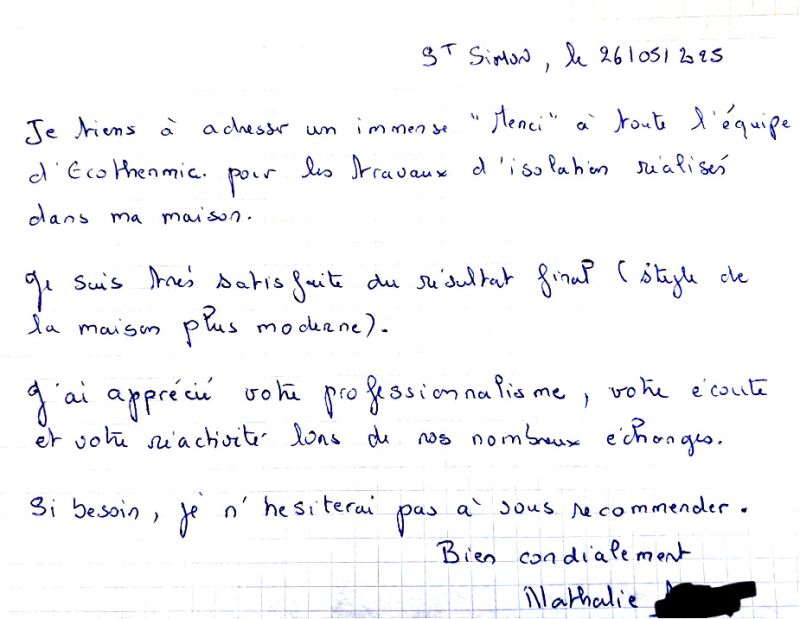 ST SIMON, le 26/05/2025
Je tiens à adresser un immense "Merci" à toute l'équipe
d'Ecothermic. pour les travaux d'isolation réalisés
dans ma maison.
Je suis très satisfaite du résultat final (style de
la maison plus moderne).
J'ai apprécié votre professionnalisme, votre écoute
et votre réactivité lors de nos nombreux échanges.
Si besoin, je n'hesiterai pas à vous recommender.
Bien cordialement
Nathalie